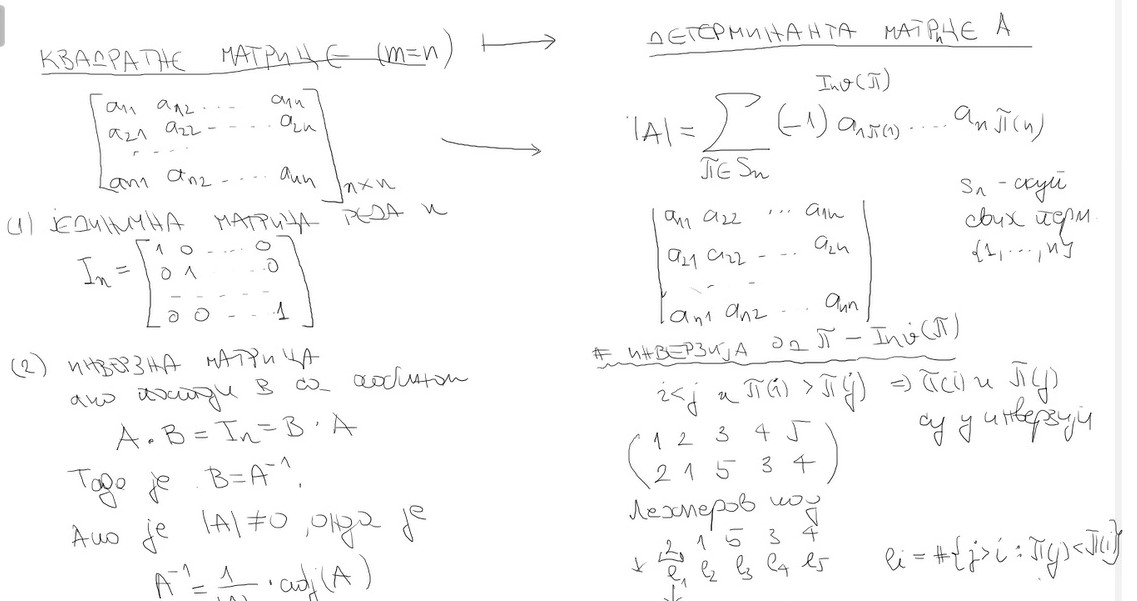 КВАДРАТНЕ МАТРИЦЕ (m=n) ⟼
[a11 a12 .... a1n
a21 a22 - .... a2n
.....
an1 an2 ..... ann] n×n
(1) ЈЕДИНИЧНА МАТРИЦА РЕДА n
In = [1 0 .... 0
0 1 .... 0
.....
0 0 ... 1]
(2) ИНВЕРЗНА МАТРИЦА
ако постоји B са особином
A · B = In = B · A
Тада је B = A⁻¹.
Ако је |A| ≠ 0, онда је
A⁻¹ = 1/|A| · adj(A)
ДЕТЕРМИНАНТА МАТРИЦЕ A
|A| = ∑ π∈Sn (−1)^Inv(π) a1π(1) .... anπ(n)
Sn - скуп
свих перм.
{1,...,n}
|a11 a22 ... a1n
a21 a22 - .. a2n
.....
an1 an2 ... ann|
# ИНВЕРЗИЈА ОД π - Inv(π)
i<j и π(i) > π(j) ⇒ π(i) и π(j)
су у инверзији
(1 2 3 4 5
2 1 5 3 4)
Лехмеров код
2 1 5 3 4
↓ l1 l2 l3 l4 l5
li = #{j>i : π(j)<π(i)}
↓